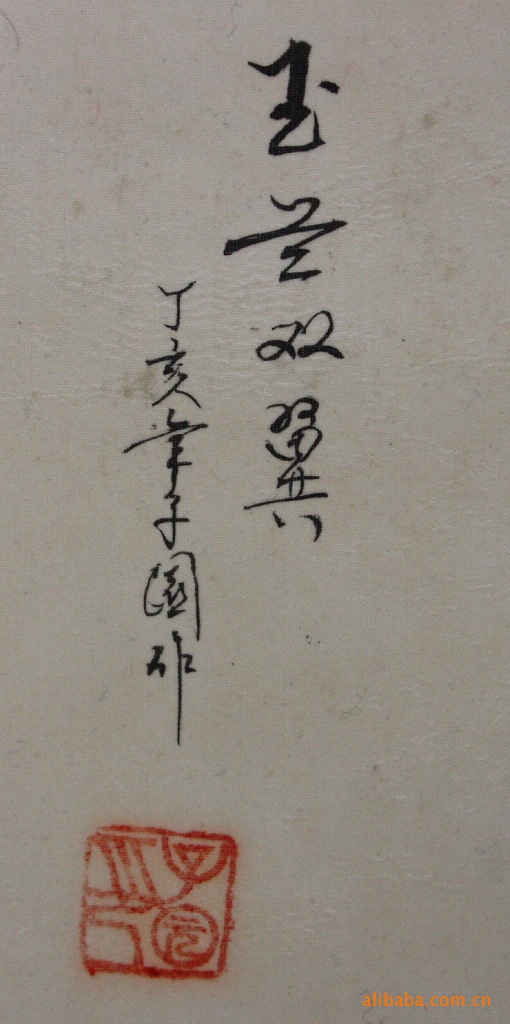 玉兰双翼
丁亥年子園作
alibaba.com.cn